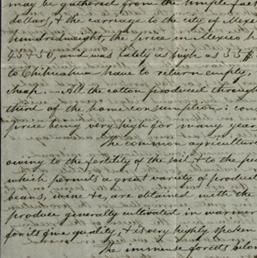 may be gathered from the simple fact
dollars, & the carriage to the city of Mexi
hundredweight, the price in Mexico h
45 to 50, and was lately as high as 55 ff
to Chihuahua have to return empty,
cheap. All the cotton produced through
third of the home consumption: con
price being very high for many year
The common agricultur
owing to the fertility of the soil & to the
which permits a great variety of product
beans, wine &c, are obtained with the
produce generally cultivated in warmer
for its fine quality, & is very highly spoken
The immense forests